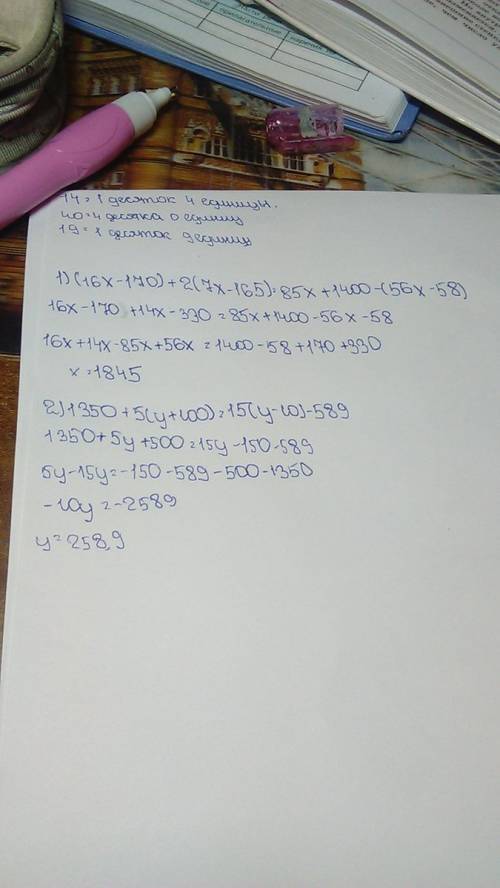 прилагательные наречия
14 = 1 десяток 4 единицы.
40 = 4 десятка 0 единиц
19 = 1 десяток 9 единиц
1) (16x-170)+2(7x-165)=85x+1400-(56x-58)
16x-170+14x-330=85x+1400-56x-58
16x+14x-85x+56x=1400-58+170+330
x=1845
2) 1350+5(y+100)=15(y-10)-589
1350+5y+500=15y-150-589
5y-15y=-150-589-500-1350
-10y=-2589
y=258,9